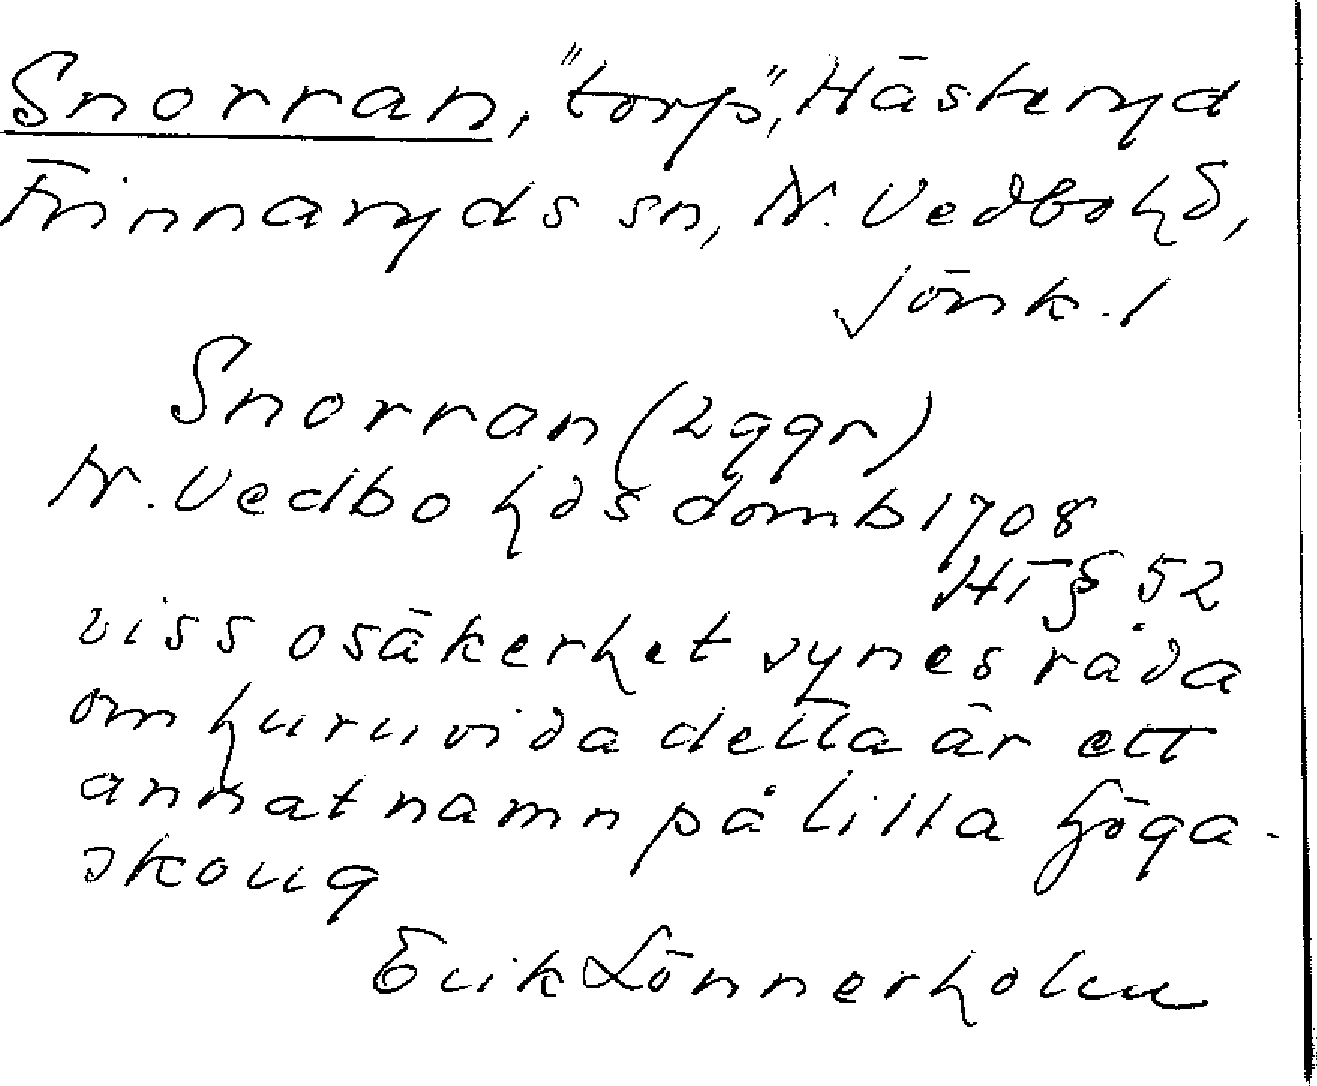 Snorran, "torp", Hästeryd
Frinnaryds sn, N. Vedbo hd,
Jönk. l
Snorran (2 ggr)
N. Vedbo hds domb 1708
HT § 52
viss osäkerhet synes råda
om huruvida detta är ett
annat namn på Lilla Höga-
skoug
Erik Lönnerholm